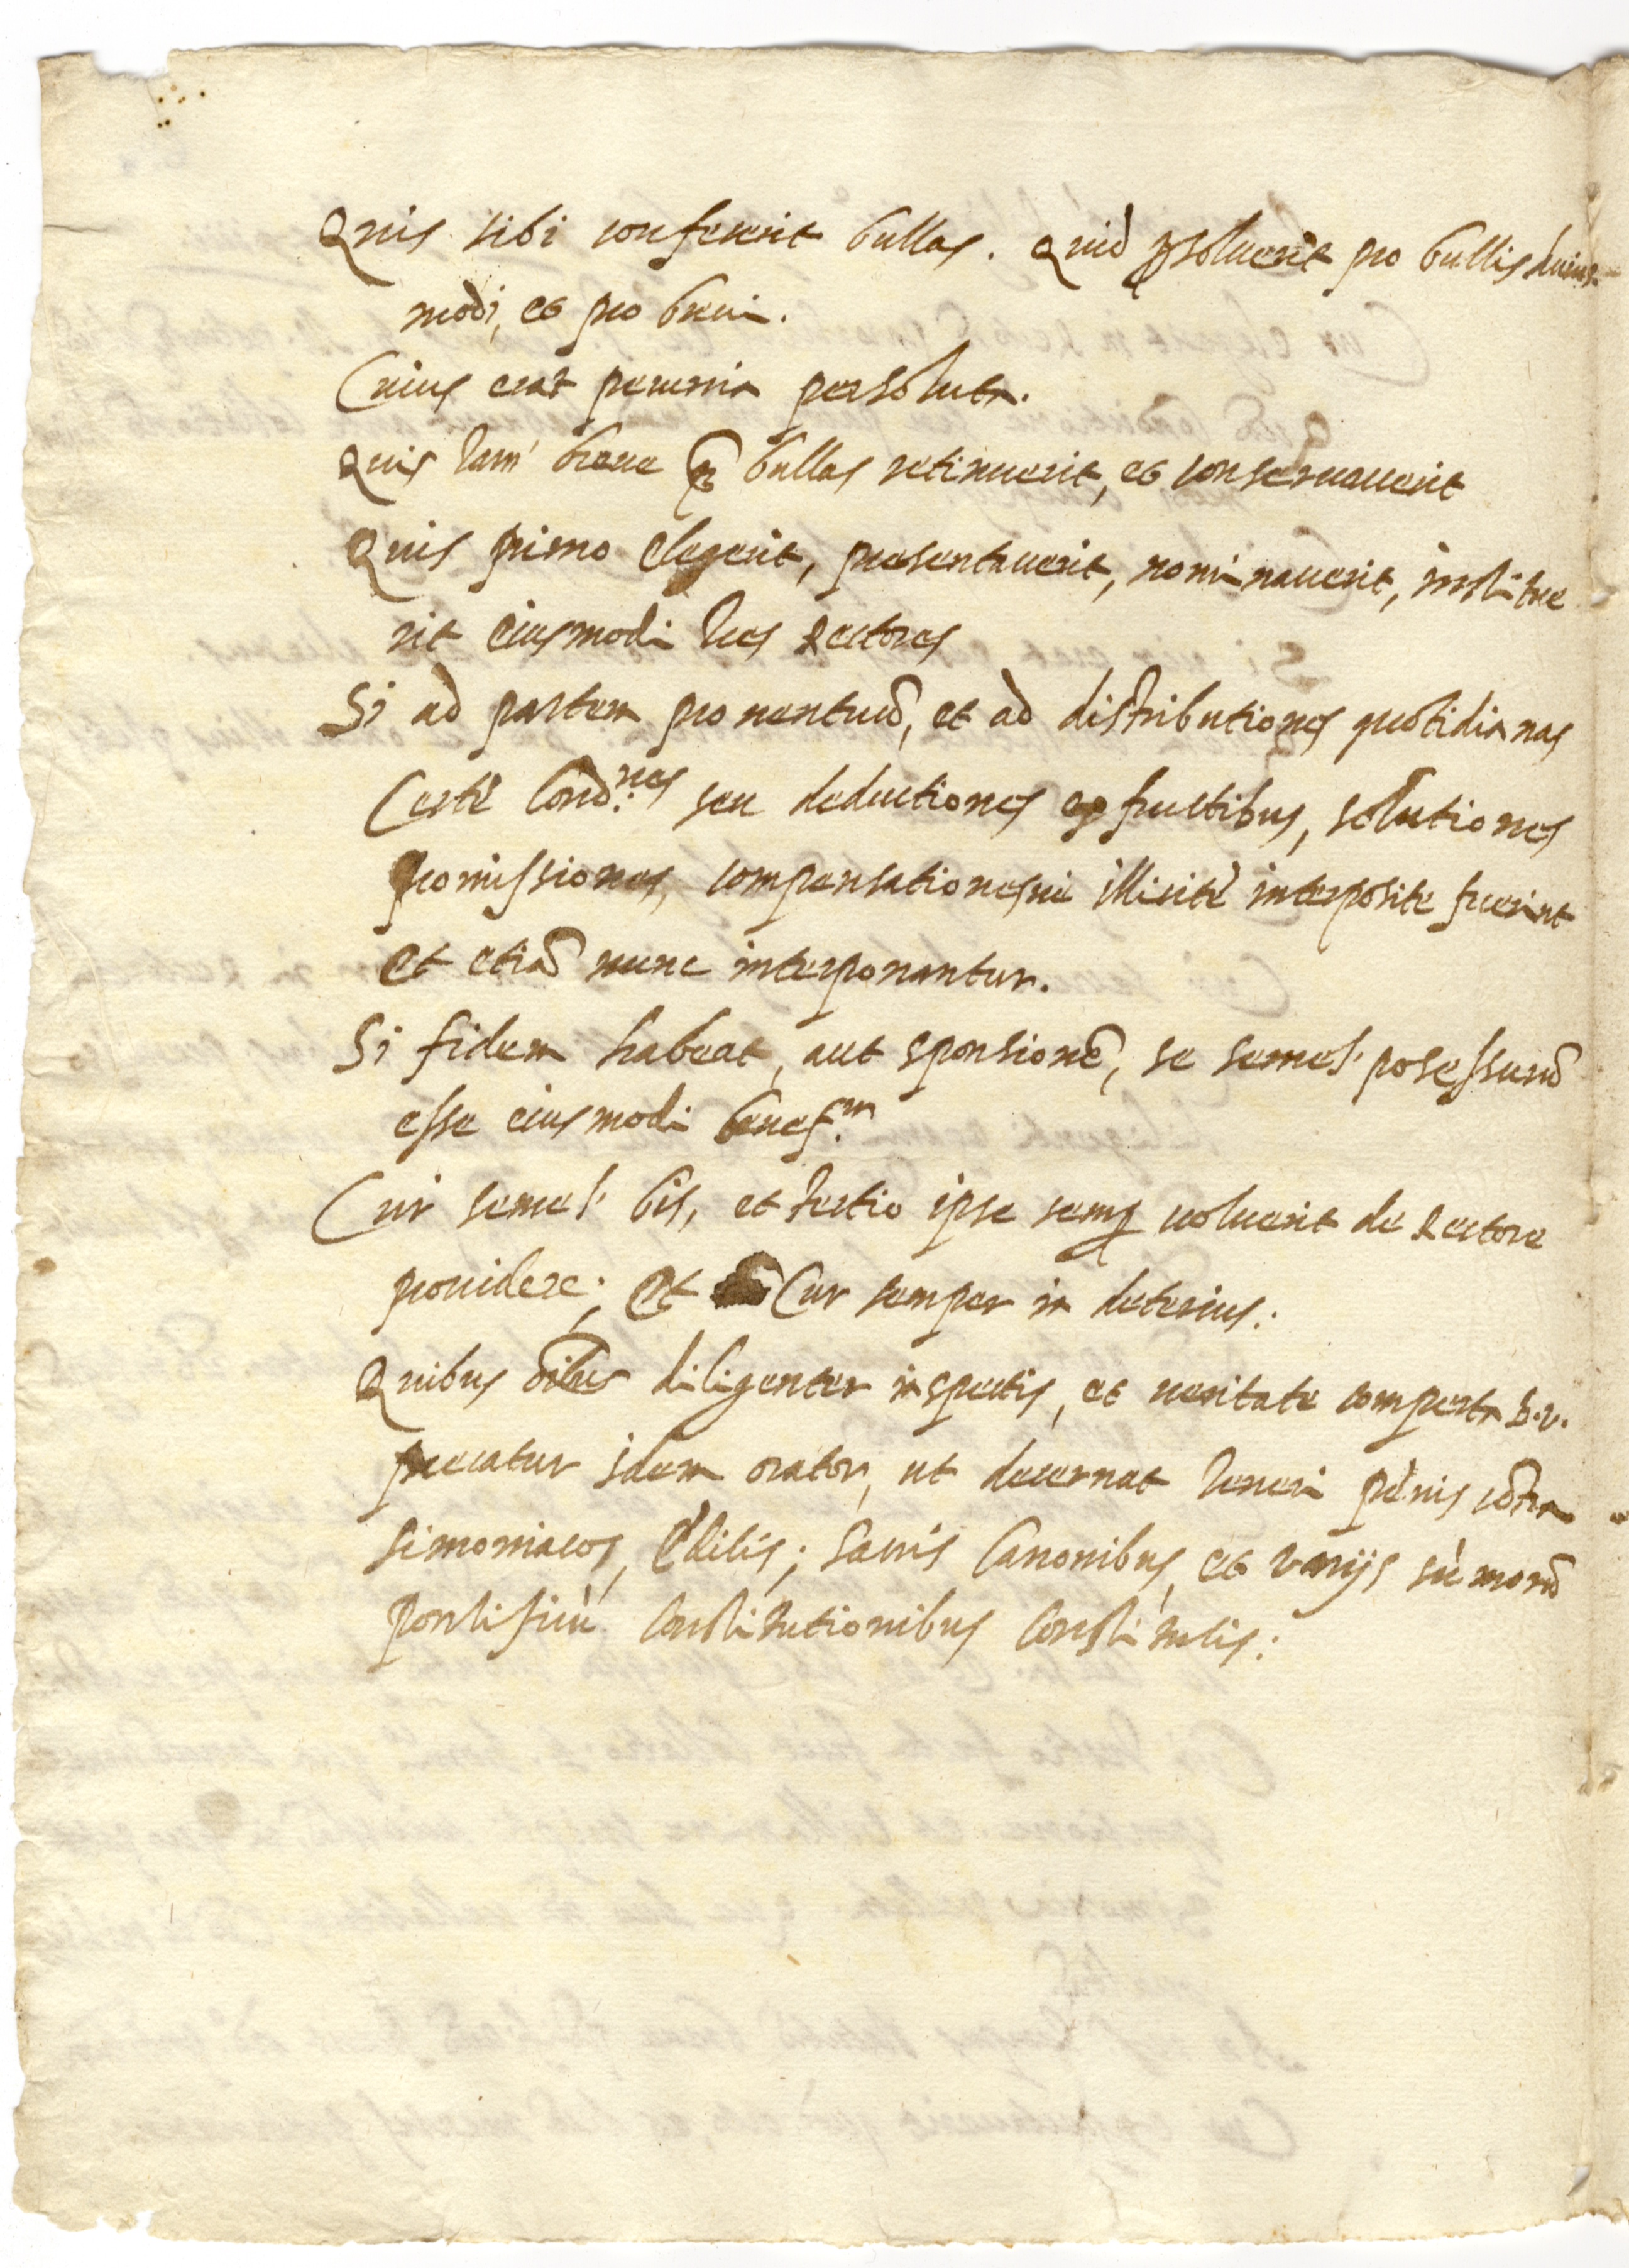 Quis sibi conferent bullas. Quid psoluerit pro bullis huius-
modi, et pro breui.
Cuius erat pecunia persoluta.
Quis tam breue q̃ bullas retinuerit, et conseruauerit
Quis primo elegerit, presentauerit, nominauerit, institue
rit eiusmodi tres Rectores
Si ad partem prouentuũ, et ad distributiones quotidianas
Certè Cond.nes seu deductiones ex fructibus, solutiones
promissiones, compensationesue illicitè interposite fuerint
et etiã nunc interponantur.
Si fidem habeat, aut sponsionẽ, se semel posessurũ
esse eiusmodi benef.m
Cur semel bis, et tertio ipse semp uoluerit de Rectore
prouidere; Et Cur semper in deterius:
Quibus oĩbus diligenter inspectis, et ueritate comperta B.V.
precatur idem orator, ut decernat teneri pẽnis cõtra
simoniacos, Editis; sacris Canonibus, et varijs sũmorũ
pontificũ constitutionibus constitutis: